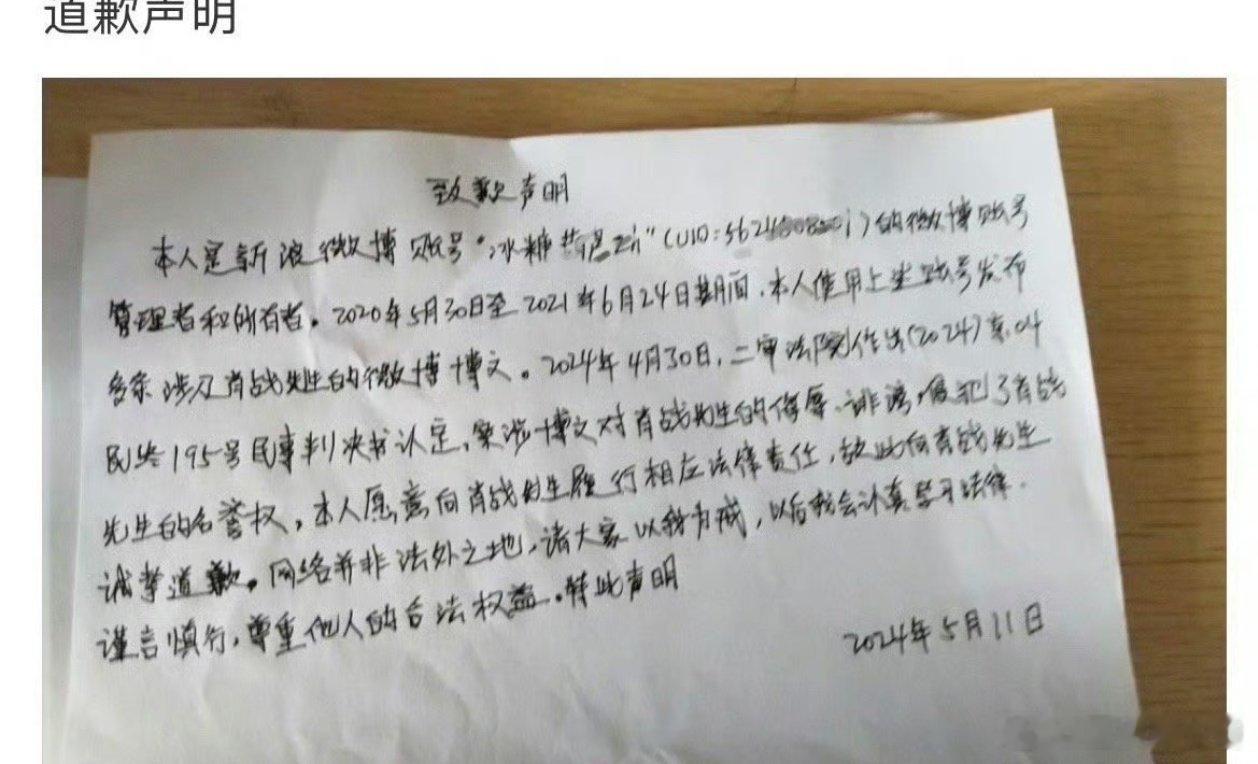 道歉声明
致歉声明
本人是新浪微博账号“冰糖 (UID:5624 的微博账号
管理者和所有者。2020年5月30日至2021年6月24日期间,本人使用上述账号发布
多条涉及肖战先生的微博博文。2024年4月30日,二审法院作出(2024)京04
民终195号民事判决书认定,案涉博文对肖战先生的侮辱、诽谤,侵犯了肖战
先生的名誉权,本人愿意向肖战先生履行相应法律责任,就此向肖战先生
诚挚道歉。网络并非法外之地,请大家以我为戒,以后我会认真学习法律.
谨言慎行,尊重他人的合法权益.特此声明
2024年5月11日